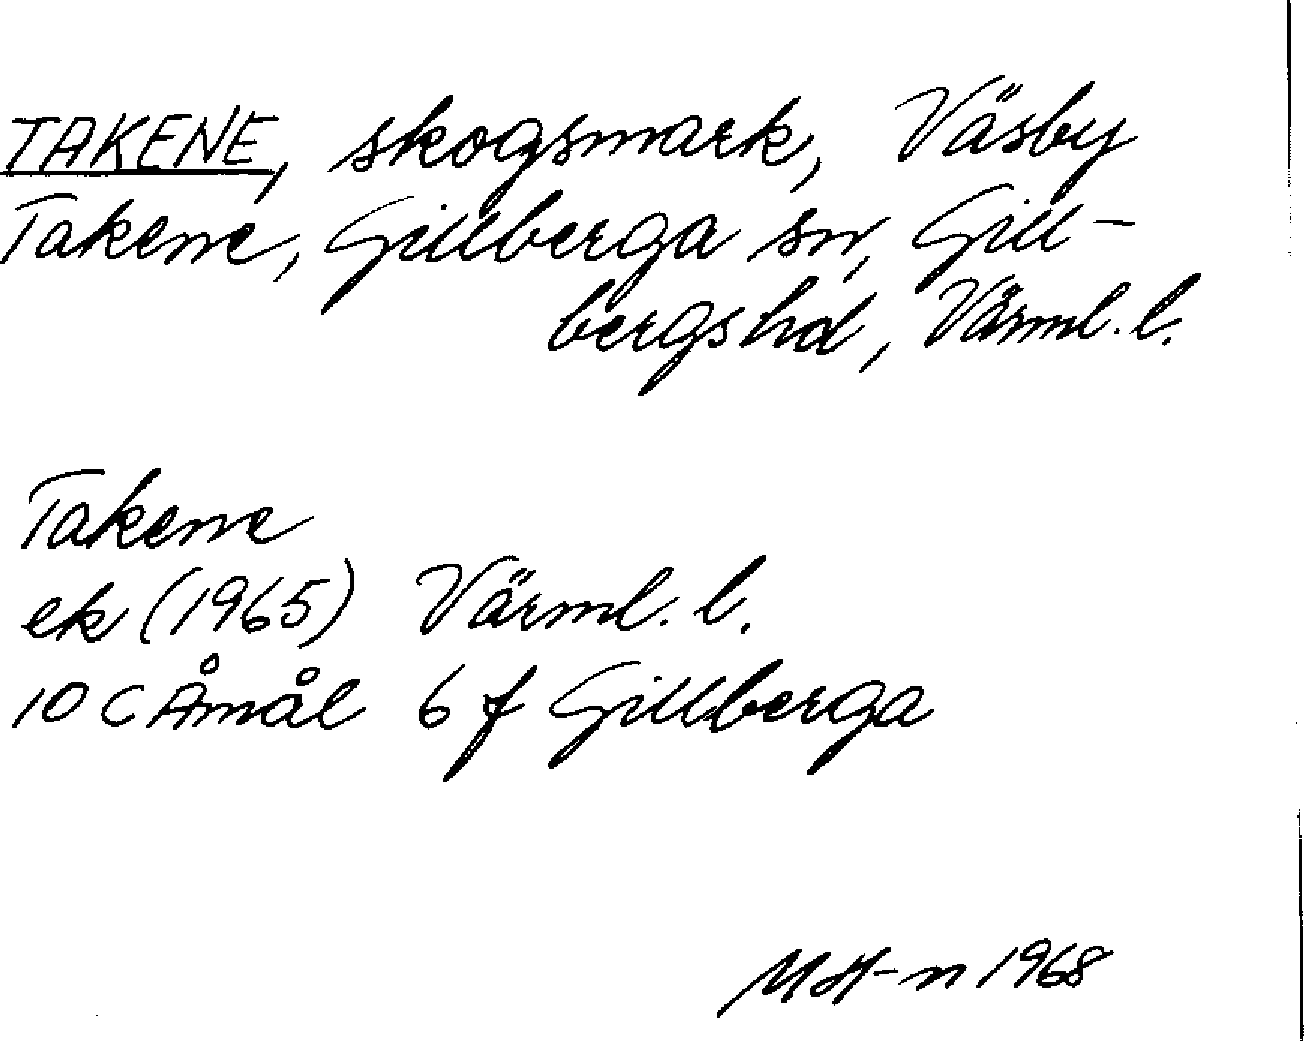 TAKENE, skogsmark, Väsby
Takene, Gillberga sn, Gill-
bergs hd, Värml. l.
Takene
ek (1965) Värml. l.
10 C Åmål 6 f Gillberga
MH-n 1968